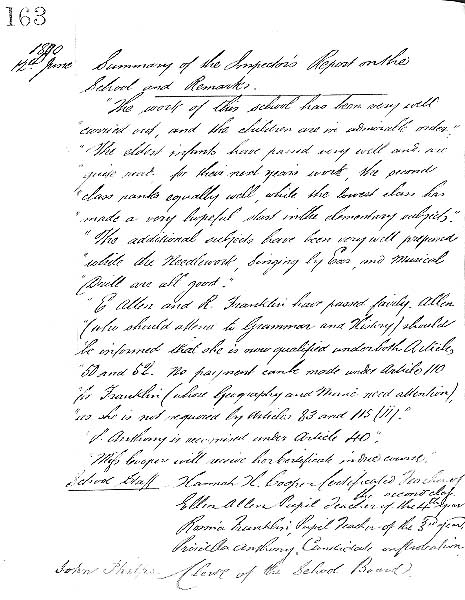 163
1890
12th June
Summary of the Inspector's Report on the
School and Remarks.
"The work of this school has been very well
"carried out, and the children are in admirable order."
"The eldest infants have passed very well and are
"quite next for their next year's work, the second
"class ranks equally well, while the lowest class has
"made a very hopeful start in the elementary subjects."
"The additional subjects have been very well prepared
"while the Needlework, Singing by Ear, and Musical
"Drill are all good."
"E Allen and R. Franklin have passed fairly. Allen
"(who should attend to Grammar and History) should
"be informed that she is now qualified under both Articles
"50 and 52. No payment can be made under Article 110
"for Franklin (whose Geography and Music need attention),
"as she is not required by Articles 83 and 115 (II)."
"P. Anthony is recognised under Article 40".
"Miss Cooper will receive her certificate in due course."
School Staff Hannah H. Cooper Certificated Teacher of
the second class
Ellen Allen Pupil Teacher of the 4th year
Rosina Franklin, Pupil Teacher of the 3rd year,
Priscilla Anthony, Candidate on Probation.
John Phelps Clerk of the School Board.